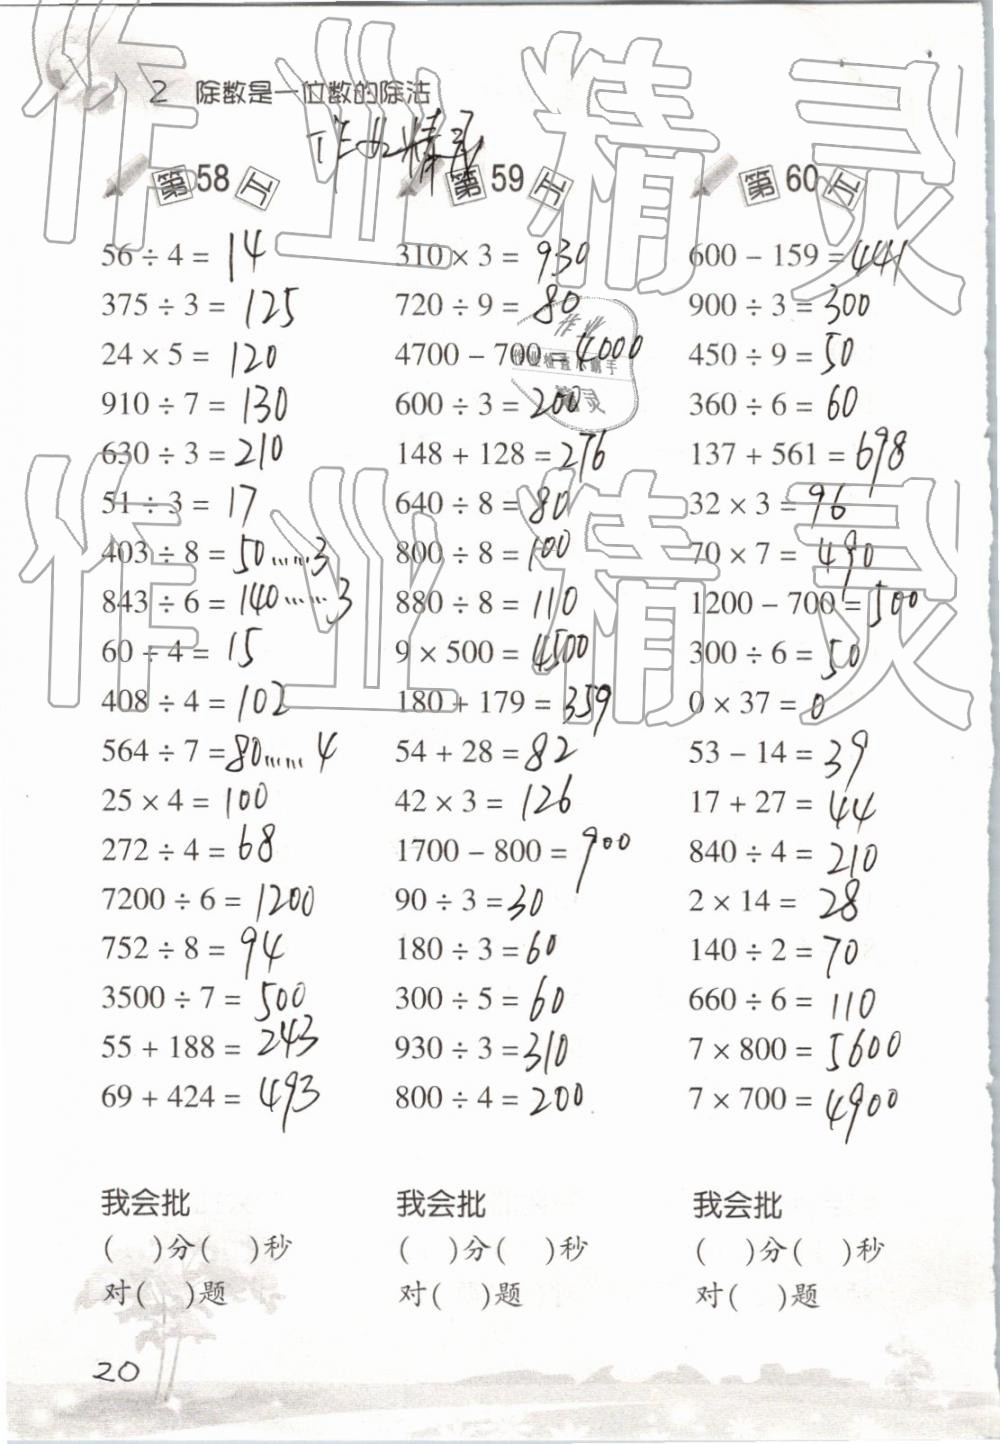 2 除数是一位数的除法
作业精灵
第58天
56 ÷ 4 = 14
375 ÷ 3 = 125
24 × 5 = 120
910 ÷ 7 = 130
630 ÷ 3 = 210
51 ÷ 3 = 17
403 ÷ 8 = 50……3
843 ÷ 6 = 140……3
60 ÷ 4 = 15
408 ÷ 4 = 102
564 ÷ 7 = 80……4
25 × 4 = 100
272 ÷ 4 = 68
7200 ÷ 6 = 1200
752 ÷ 8 = 94
3500 ÷ 7 = 500
55 + 188 = 243
69 + 424 = 493
我会批
( )分( )秒
对( )题
第59天
310 × 3 = 930
720 ÷ 9 = 80
4700 − 700 = 4000
600 ÷ 3 = 200
148 + 128 = 276
640 ÷ 8 = 80
800 ÷ 8 = 100
880 ÷ 8 = 110
9 × 500 = 4500
180 + 179 = 359
54 + 28 = 82
42 × 3 = 126
1700 − 800 = 900
90 ÷ 3 = 30
180 ÷ 3 = 60
300 ÷ 5 = 60
930 ÷ 3 = 310
800 ÷ 4 = 200
我会批
( )分( )秒
对( )题
第60天
600 − 159 = 441
900 ÷ 3 = 300
450 ÷ 9 = 50
360 ÷ 6 = 60
137 + 561 = 698
32 × 3 = 96
70 × 7 = 490
1200 − 700 = 500
300 ÷ 6 = 50
0 × 37 = 0
53 − 14 = 39
17 + 27 = 44
840 ÷ 4 = 210
2 × 14 = 28
140 ÷ 2 = 70
660 ÷ 6 = 110
7 × 800 = 5600
7 × 700 = 4900
我会批
( )分( )秒
对( )题
20
作业精灵
作业精灵